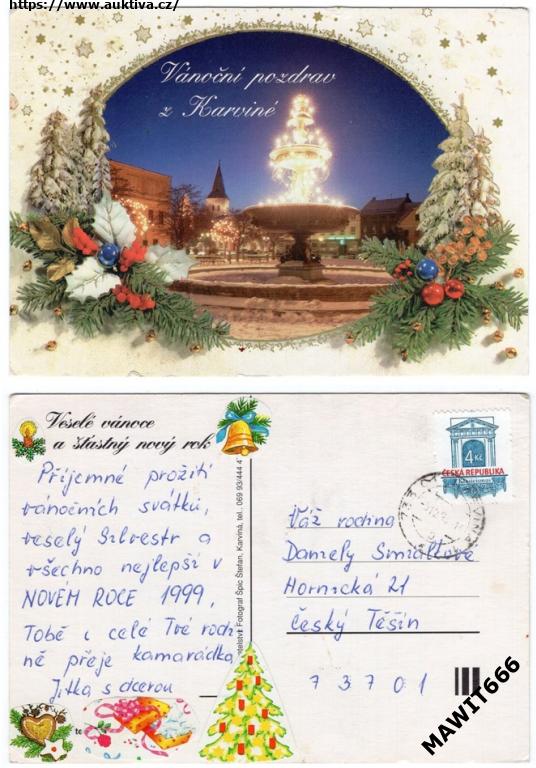 https://www.auktiva.cz/
Vánoční pozdrav
z Karviné
Veselé vánoce
a šťastný nový rok
Příjemné prožití
vánočních svátků,
veselý Silvestr a
všechno nejlepší v
NOVÉM ROCE 1999.
Tobě i celé Tvé rodi-
ně přeje kamarádka
Jitka s dcerou
to
Fotograf Špic Štefan, Karviná, tel.: 069 93/444 4
4 Kč
ČESKÁ REPUBLIKA
733
Váž rodina
Daniely
Hornická 21
Český Těšín
73701
MAWIT666